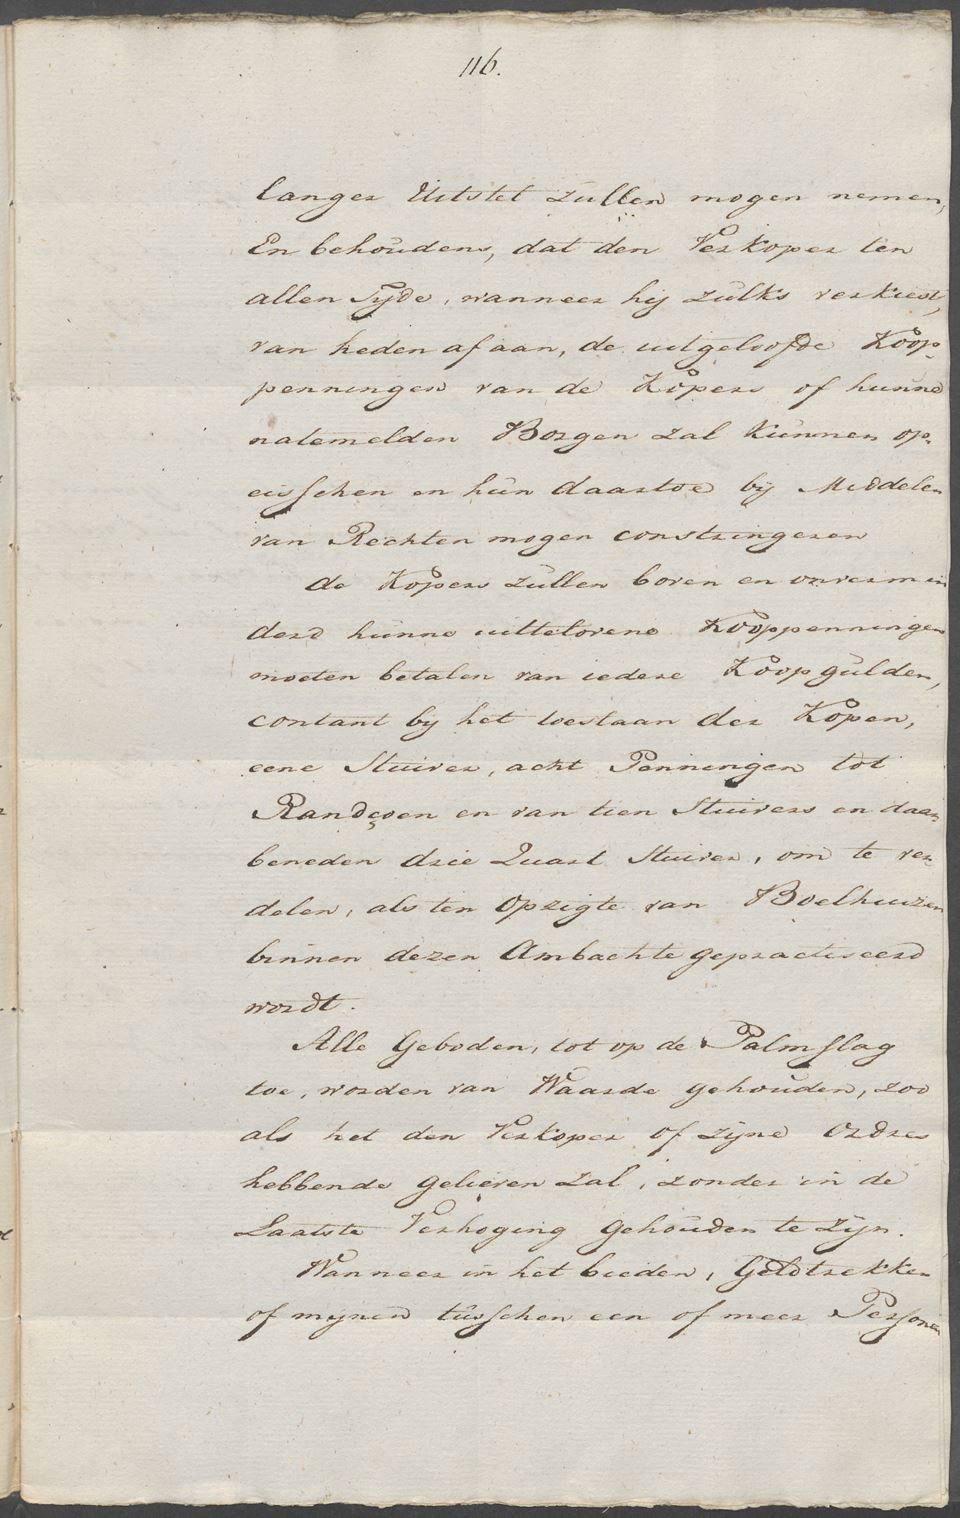 116.
langer Uitstel zullen mogen nemen,
En behoudens, dat den Verkoper ten
allen Tyde, wanneer hij zulks verkiest,
van heden af aan, de uitgeloofde Koop-
penningen van de Kopers of hunne
natemelden Borgen zal kunnen op-
eisschen en hun daartoe bij Middelen
van Rechten mogen constringeren
de Kopers zullen boven en onvermin
derd hunne uittelovene Kooppenningen
moeten betalen van iedere Koopgulden,
contant by het toeslaan der Kopen,
eene Stuiver, acht Penningen tot
Randzoen en van tien Stuivers en daar
beneden drie Quart Stuiver, om te ver-
delen, als ten Opzigte van Boelhuizen
binnen dezen Ambachte gepractiseerd
wordt.
Alle Geboden, tot op de Palmslag
toe, worden van Waarde gehouden, zoo
als het den Verkoper of zijne Ordre
hebbende gelieven zal, zonder in de
Laatste Verhoging gehouden te zijn.
Wanneer in het bieden, Geldtrekken
of mijnen tusschen een of meer Personen